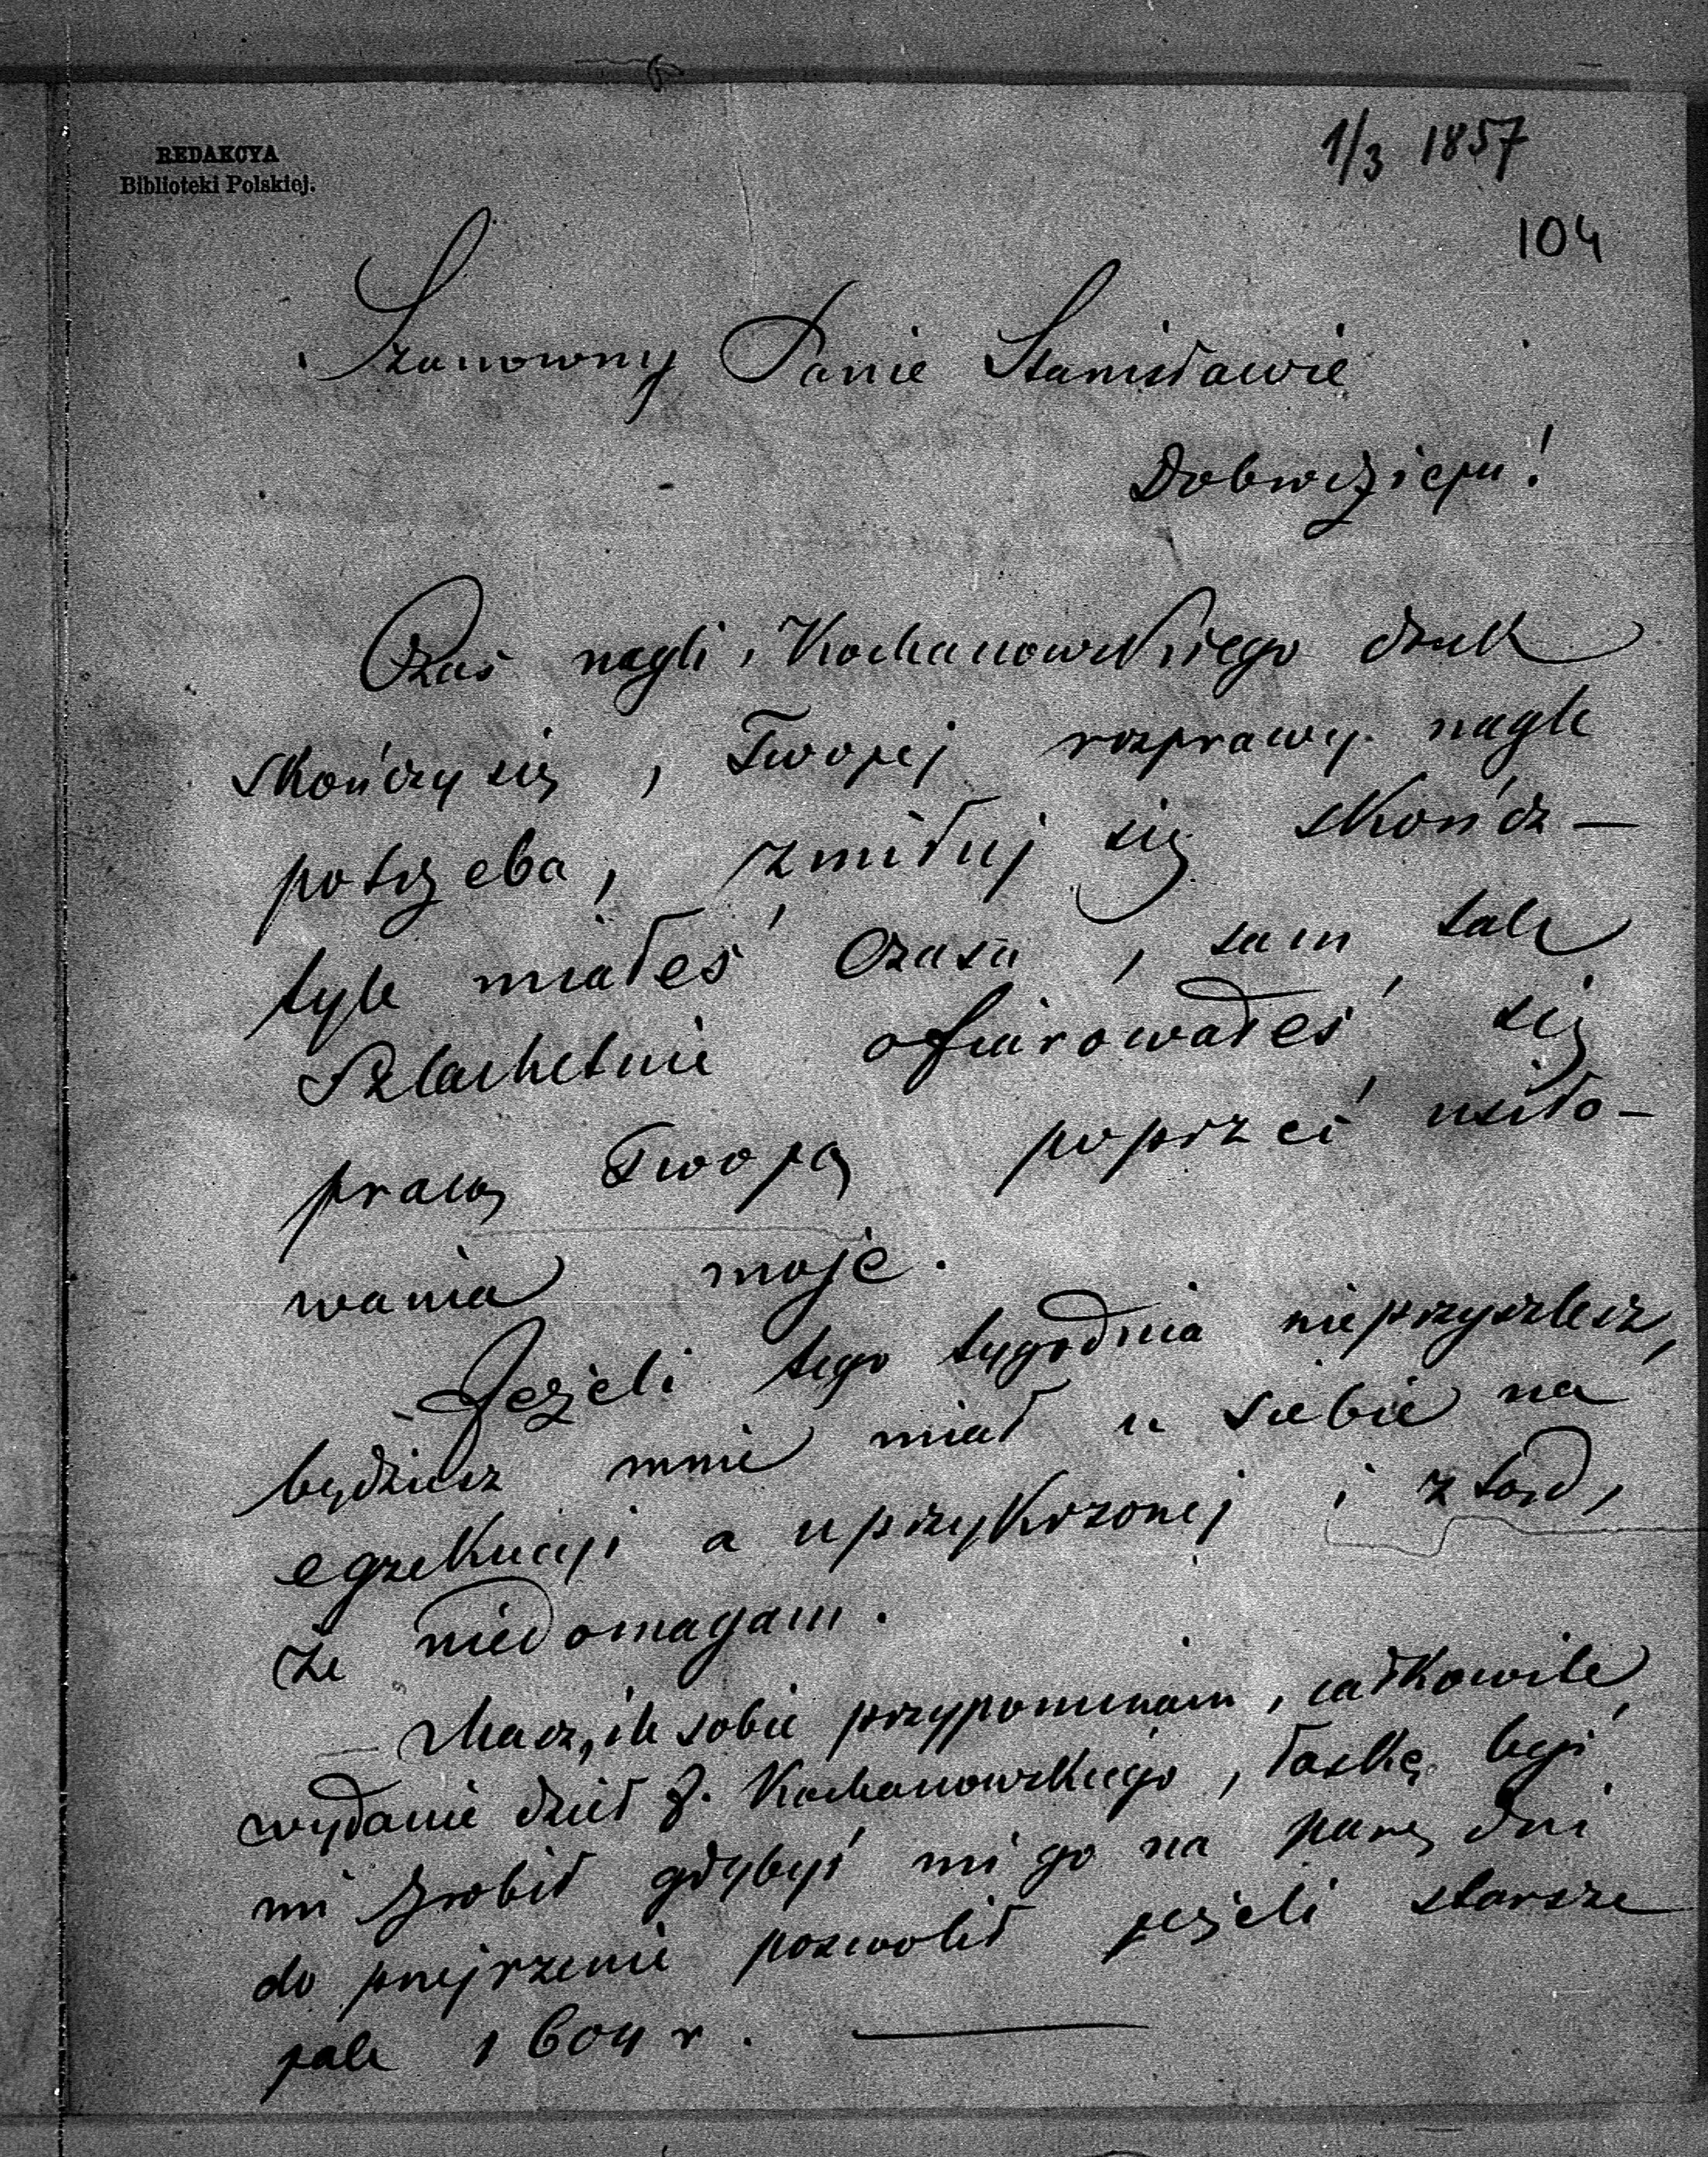 REDAKCYA
Biblioteki Polskiej.
1/3 1857
104
Szanowny Panie Stanisławie
Dobrodzieju!
Czas nagli, Kochanowskiego druk
skończy się, Twojej rozprawy nagle
potrzeba, zmiłuj się skończ —
tyle miałeś czasu, sam tak
szlachetnie ofiarowałeś się
pracą Twoją poprzeć usiło-
wania moje.
Jeżeli tego tygodnia nieprzyszlesz,
będziesz mnie miał u siebie na
egzekucji a uprzykrzonej i ztąd,
że niedomagam.
— Masz, ile sobie przypominam, całkowite
wydanie dzieł J. Kochanowskiego, łaskę byś
mi zrobił gdybyś mi go na parę dni
do przejrzenia pozwolił jeżeli starsze
jak 1604 r. —